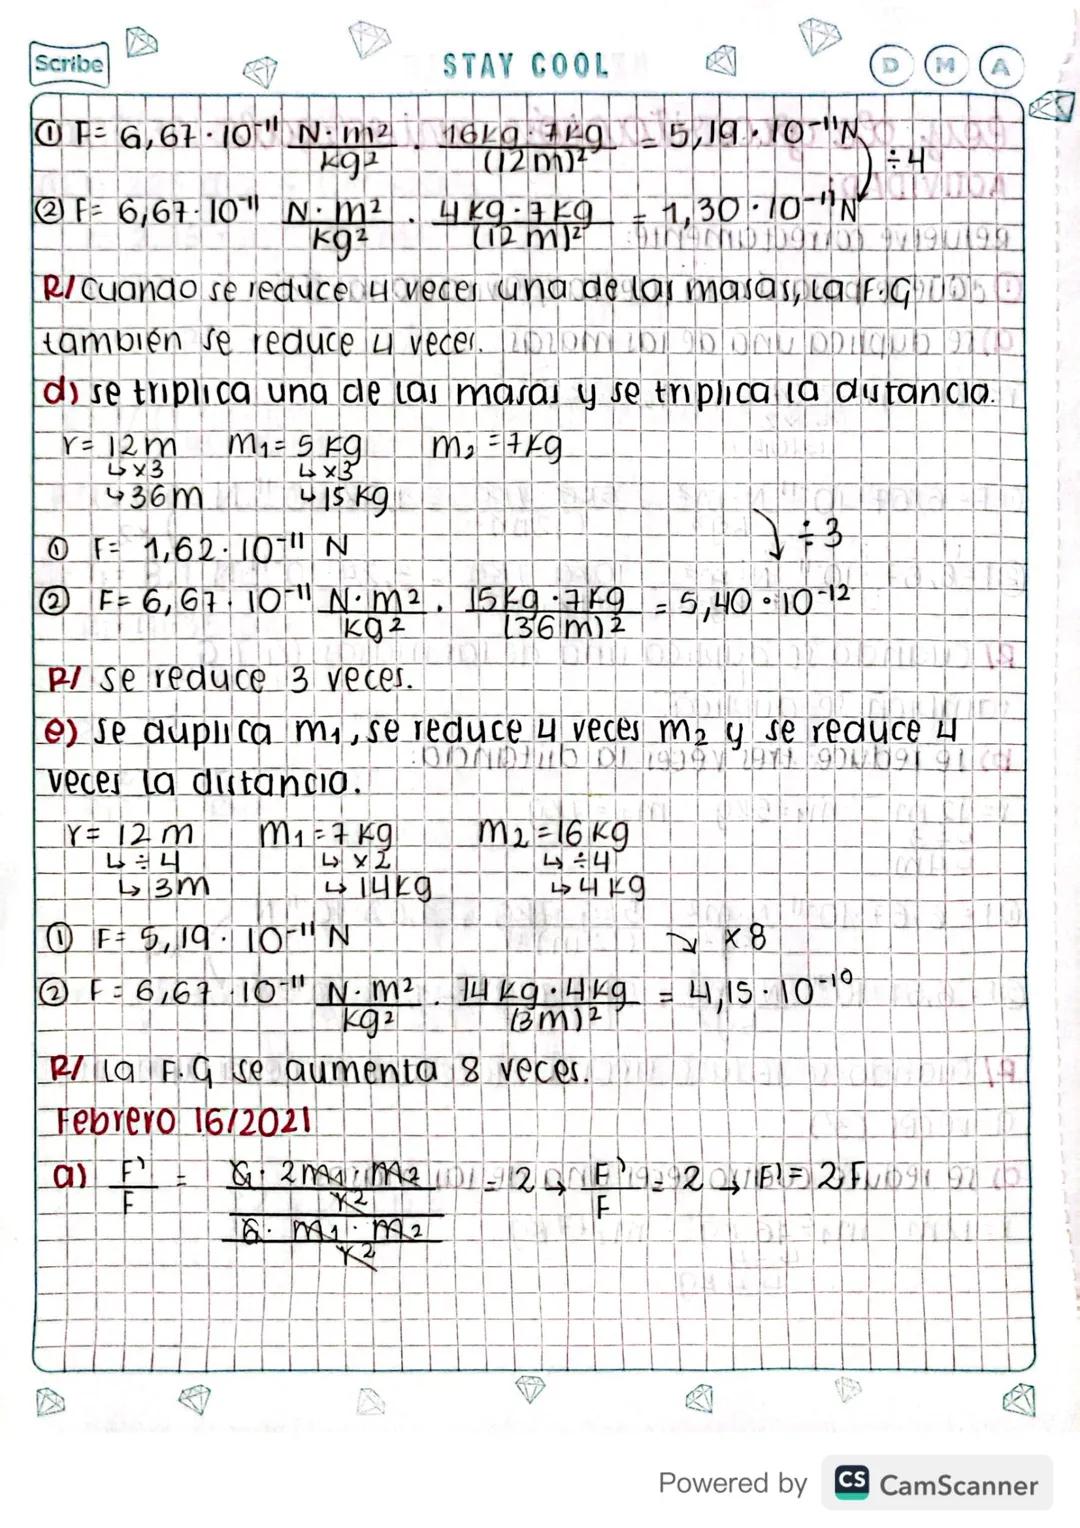 Scribe
STAY COOL
D M A
① F= 6,67·10⁻¹¹ N·m²/kg² · 16kg·7kg/(12m)² = 5,19·10⁻¹¹N
÷4
② F= 6,67·10⁻¹¹ N·m²/kg² · 4kg·7kg/(12m)² = 1,30·10⁻¹¹N
R/ Cuando se reduce 4 veces una de las masas, la F.G
también se reduce 4 veces.
d) se triplica una de las masas y se triplica la distancia.
r= 12m m₁= 5kg m₂=7kg
↳×3 ↳×3
↳36m ↳15kg
÷3
① F= 1,62·10⁻¹¹ N
② F= 6,67·10⁻¹¹ N·m²/kg² · 15kg·7kg/(36m)² = 5,40·10⁻¹²
R/ se reduce 3 veces.
e) se duplica m₁, se reduce 4 veces m₂ y se reduce 4
veces la distancia.
r= 12m m₁=7kg m₂=16kg
↳÷4 ↳×2 ↳÷4
↳3m ↳14kg ↳4kg
① F= 5,19·10⁻¹¹ N ↘ ×8
② F= 6,67·10⁻¹¹ N·m²/kg² · 14kg·4kg/(3m)² = 4,15·10⁻¹⁰
R/ La F.G se aumenta 8 veces.
Febrero 16/2021
a) F'/F = G·2m₁·m₂/r² / G·m₁·m₂/r² = 2 → F'/F = 2 → F' = 2F
Powered by CS CamScanner